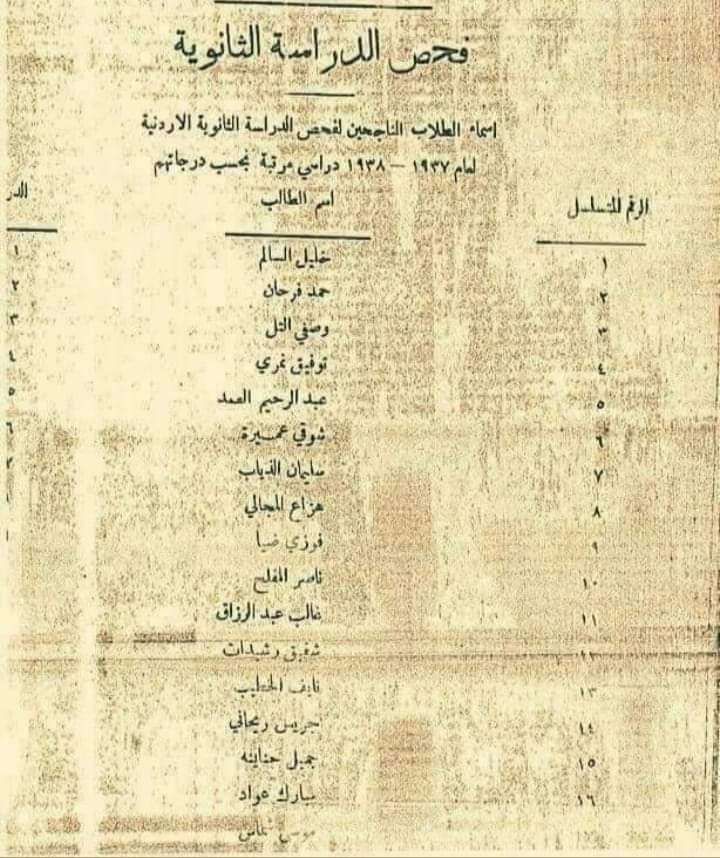 فحص الدراسة الثانوية
اسماء الطلاب الناجحين لفحص الدراسة الثانوية الاردنية
لعام ١٩٣٧ — ١٩٣٨ دراسي مرتبة بحسب درجاتهم
الرقم المتسلسل اسم الطالب
١ خليل السالم ١
٢ حمد فرحان ٢
٣ وصفي التل ٣
٤ توفيق نمري ٤
٥ عبد الرحيم العمد ٥
٦ شوقي عميرة ٦
٧ سليمان الذياب
٨ هزاع المجالي
٩ فوزي ضيا
١٠ ناصر المفلح
١١ غالب عبد الرزاق
١٢ شفيق رشيدات
١٣ نايف الخطيب
١٤ جريس ريحاني
١٥ جميل حناينه
١٦ مبارك عواد